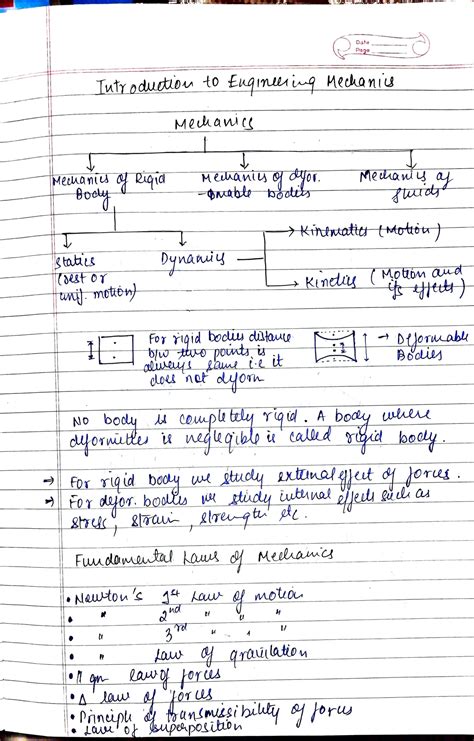 Date
Page
Introduction to Engineering Mechanics
Mechanics
Mechanics of Rigid Body
Mechanics of defor-mable bodies
Mechanics of fluids
Statics
(rest or
unif. motion)
Dynamics
→ Kinematics (Motion)
→ Kinetics (Motion and
its effects)
For rigid bodies distance
b/w two points is
always same i.e it
does not deform
→ Deformable
Bodies
No body is completely rigid. A body where
deformities is neglegible is called rigid body.
→ For rigid body we study external effect of forces.
→ For defor. bodies we study internal effects such as
stress, strain, strength etc.
Fundamental Laws of Mechanics
• Newton's 1st Law of motion
• " 2nd " " "
• " 3rd " " "
• " Law of gravitation
• || gm law of forces
• Δ law of forces
• Principle of transmissibility of forces
• Law of superposition